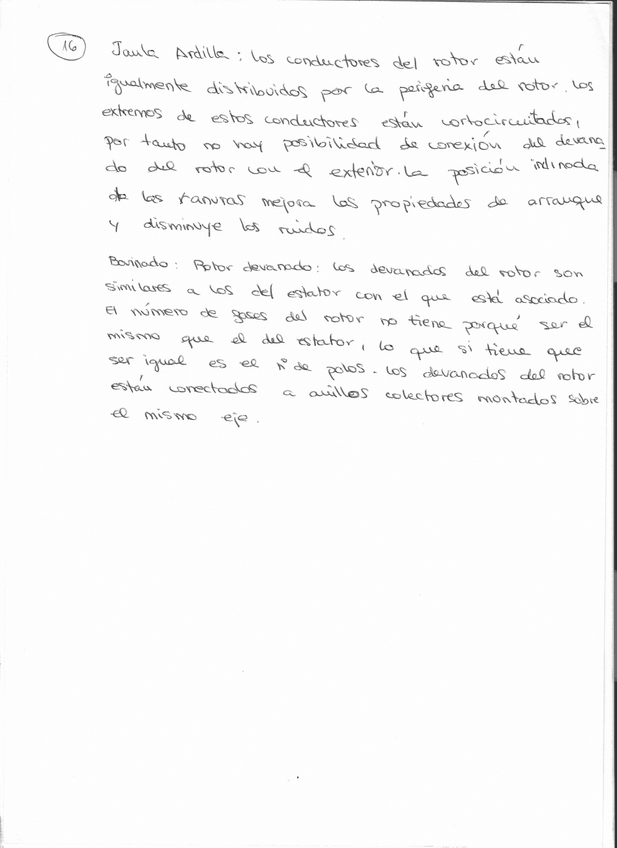 16 Jaula Ardilla: los conductores del rotor están
igualmente distribuidos por la periferia del rotor. los
extremos de estos conductores están cortocircuitados,
por tanto no hay posibilidad de conexión del devana
do del rotor con el exterior. la posición inclinada
de las ranuras mejora las propiedades de arranque
y disminuye los ruidos.
Bovinado: Rotor devanado: los devanados del rotor son
similares a los del estator con el que está asociado.
El número de fases del rotor no tiene porqué ser el
mismo que el del estator, lo que si tiene que
ser igual es el nº de polos. los devanados del rotor
están conectados a anillos colectores montados sobre
el mismo eje.